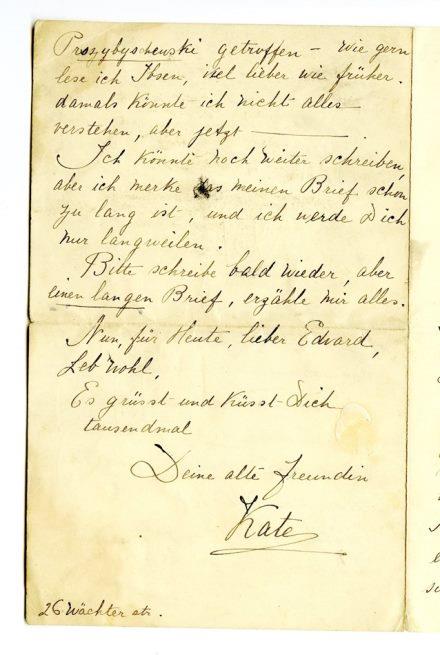 Prszybyschewski getroffen – wie gern
lese ich Ibsen, viel lieber wie früher.
damals könnte ich nicht alles
verstehen, aber jetzt ———
Ich könnte noch weiter schreiben,
aber ich merke das meinen Brief schon
zu lang ist, und ich werde Dich
nur langweilen.
Bitte schreibe bald wieder, aber
einen langen Brief, erzähle mir alles.
Nun, für Heute, lieber Edvard,
Leb Wohl,
Es grüsst und küsst Dich
tausendmal
Deine alte Freundin
Kate
26 Wächter str.